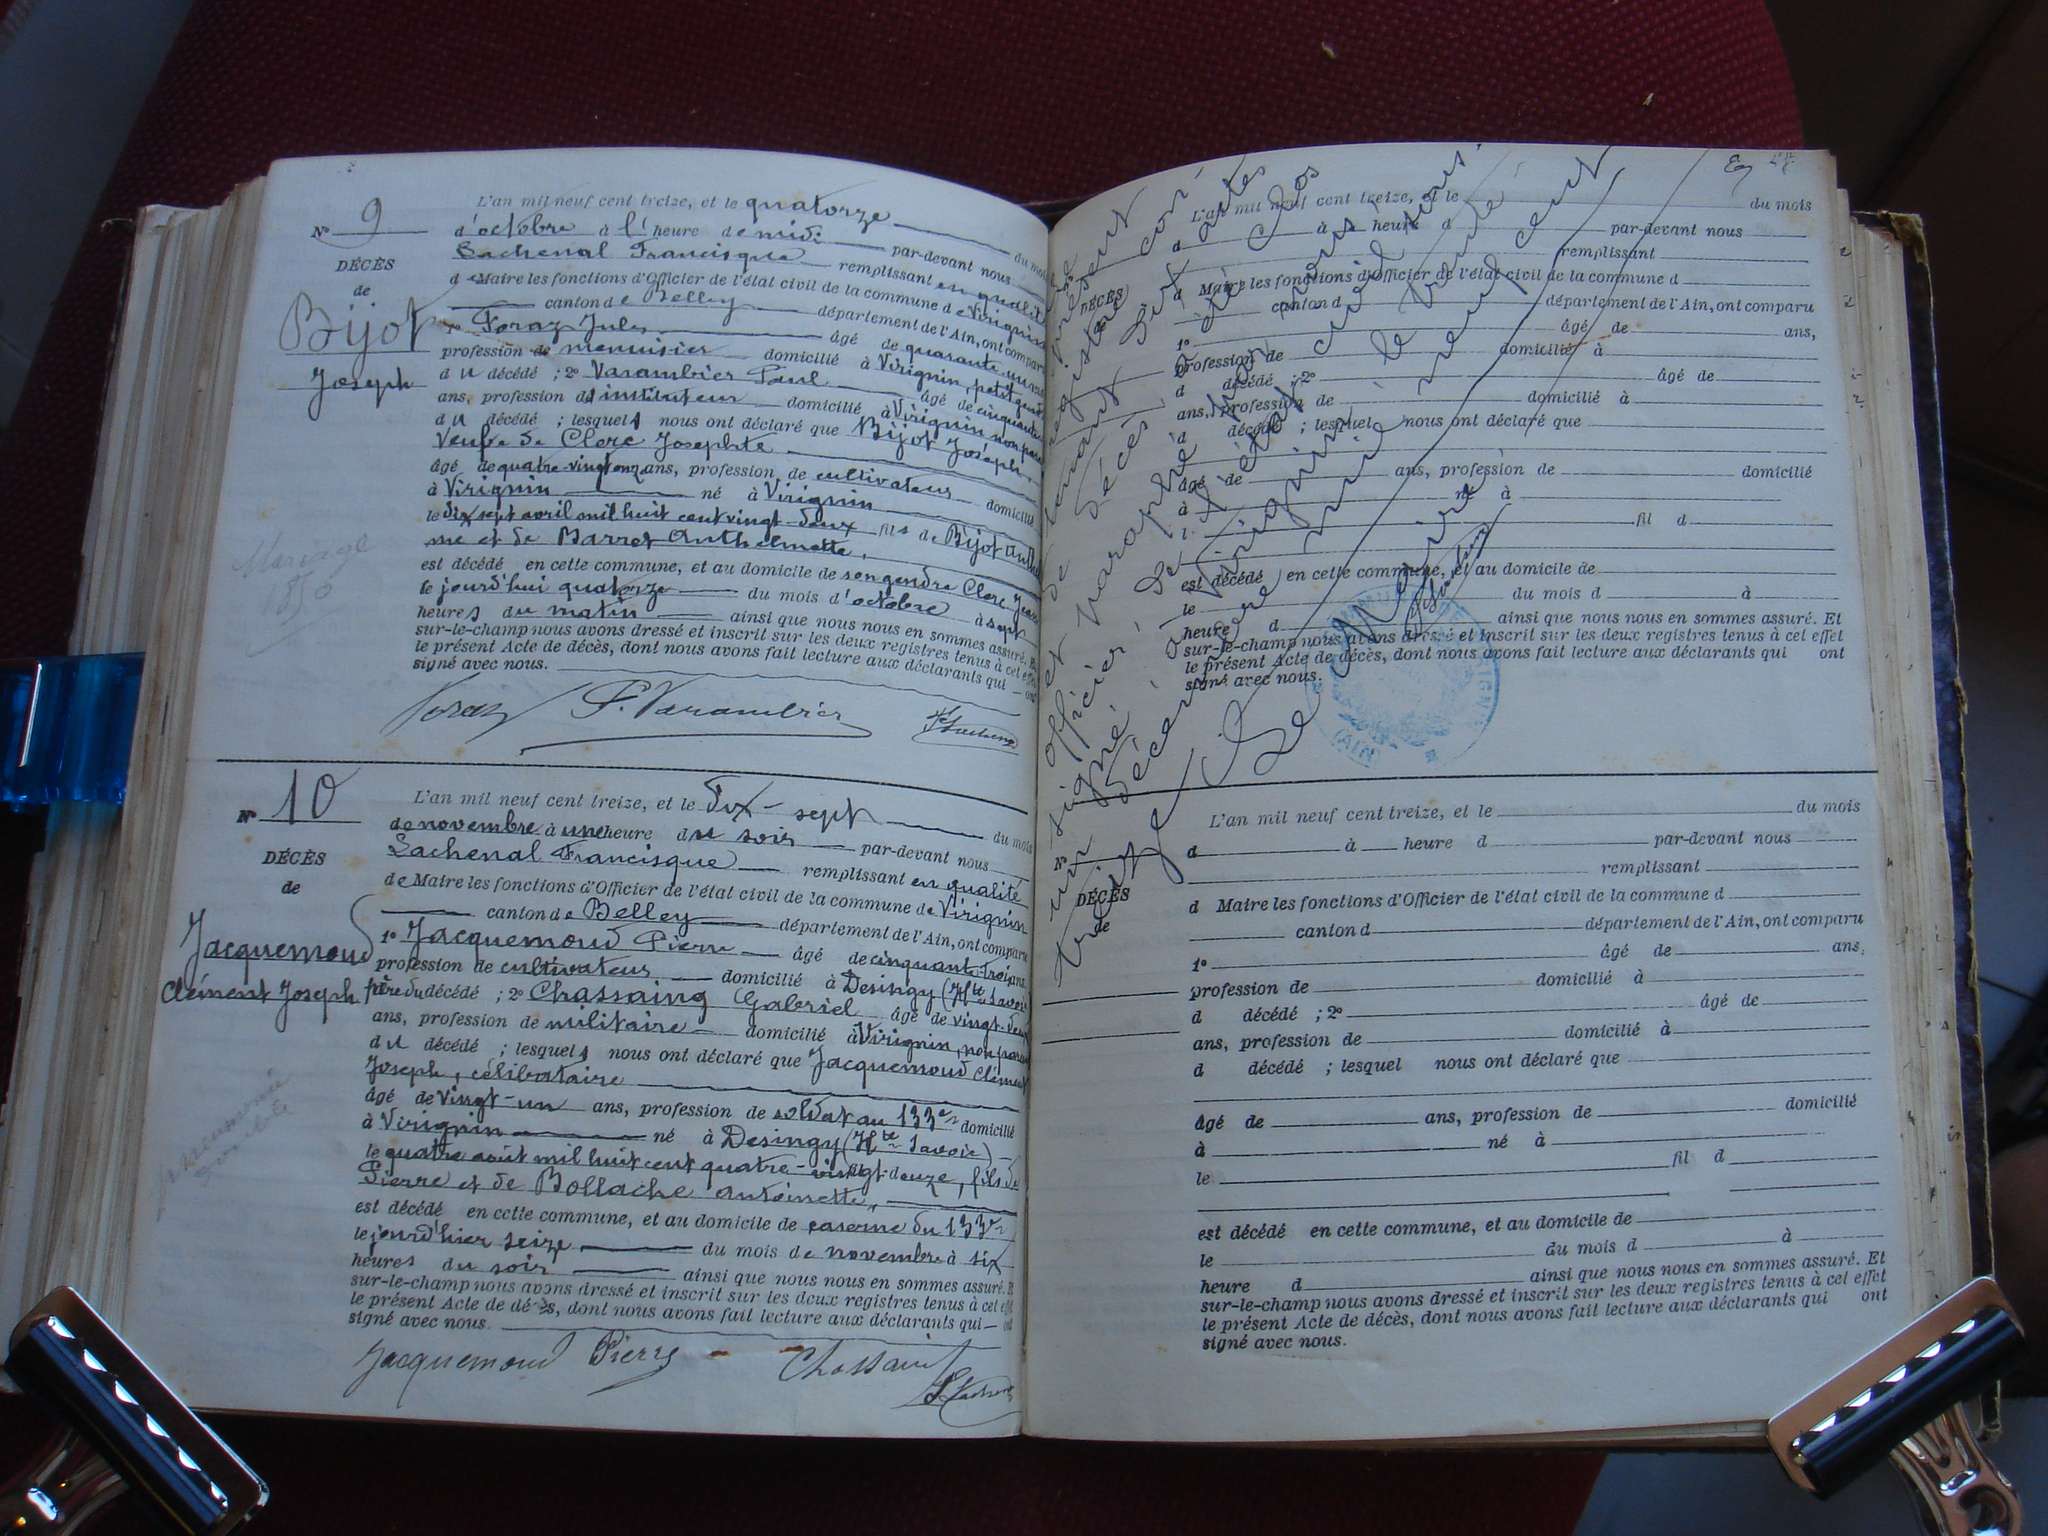 L'an mil neuf cent treize, et le quatorze du mois
N° 9
d'octobre à l'heure de midi par-devant nous
Lachenal Francisque remplissant en qualité
DÉCÈS
de Maire les fonctions d'Officier de l'état civil de la commune de Virignin
de
canton de Belley département de l'Ain, ont comparu
Bijot
1° Foraz Jules âgé de quarante un ans
profession de menuisier domicilié à Virignin, petit gendre
Joseph
du décédé ; 2° Varambier Paul âgé de cinquante
ans, profession d'instituteur domicilié à Virignin non parent
du décédé ; lesquels nous ont déclaré que Bijot Joseph,
veuf de Clerc Josephte
âgé de quatre-vingt onze ans, profession de cultivateur domicilié
à Virignin né à Virignin
le dix sept avril mil huit cent vingt-deux fils de Bijot Anthel
me et de Barret Anthelmette,
est décédé en cette commune, et au domicile de son gendre Clerc
le jourd'hui quatorze du mois d'octobre à sept
Mariage
1850
heures du matin ainsi que nous nous en sommes assuré. Et
sur-le-champ nous avons dressé et inscrit sur les deux registres tenus à cet effet
le présent Acte de décès, dont nous avons fait lecture aux déclarants qui ont
signé avec nous.
Foraz P. Varambier Lachenal
L'an mil neuf cent treize, et le dix-sept du mois
N° 10
de novembre à une heure du soir par-devant nous
Lachenal Francisque remplissant en qualité
DÉCÈS
de Maire les fonctions d'Officier de l'état civil de la commune de Virignin
de
canton de Belley département de l'Ain, ont comparu
Jacquemoud
1° Jacquemoud Pierre âgé de cinquante-trois ans
profession de cultivateur domicilié à Desingy (Hte Savoie)
Clément Joseph
père du décédé ; 2° Chassaing Gabriel âgé de vingt-deux
ans, profession de militaire domicilié à Virignin, non parent
du décédé ; lesquels nous ont déclaré que Jacquemoud Clément
Joseph, célibataire
âgé de vingt-un ans, profession de soldat au 133e domicilié
à Virignin né à Desingy (Hte Savoie)
le quatre août mil huit cent quatre-vingt-douze, fils de
Pierre et de Bollache Antoinette,
est décédé en cette commune, et au domicile de caserne du 133e
le jourd'hier seize du mois de novembre à six
heures du soir ainsi que nous nous en sommes assuré. Et
sur-le-champ nous avons dressé et inscrit sur les deux registres tenus à cet effet
le présent Acte de décès, dont nous avons fait lecture aux déclarants qui ont
signé avec nous.
Jacquemoud Pierre Chassaing Lachenal
L'an mil neuf cent treize, et le du mois
d à heure d par-devant nous
remplissant
DÉCÈS
d Maire les fonctions d'Officier de l'état civil de la commune d
canton d département de l'Ain, ont comparu
1° âgé de ans,
profession de domicilié à
d décédé ; 2° âgé de
ans, profession de domicilié à
d décédé ; lesquel nous ont déclaré que
âgé de ans, profession de domicilié
à né à
fil d
est décédé en cette commune, et au domicile de
le du mois d à
heure d ainsi que nous nous en sommes assuré. Et
sur-le-champ nous avons dressé et inscrit sur les deux registres tenus à cet effet
le présent Acte de décès, dont nous avons fait lecture aux déclarants qui ont
signé avec nous.
présent
registre con
tenant dix actes
de décès a été clos
et paraphé par nous
officier de l'état civil sous
signé. Virignin le trente
un décembre mil neuf cent
treize
Le Maire
Lachenal
(AIN)
L'an mil neuf cent treize, et le du mois
N°
d à heure d par-devant nous
remplissant
DÉCÈS
d Maire les fonctions d'Officier de l'état civil de la commune d
de
canton d département de l'Ain, ont comparu
1° âgé de ans,
profession de domicilié à
d décédé ; 2° âgé de
ans, profession de domicilié à
d décédé ; lesquel nous ont déclaré que
âgé de ans, profession de domicilié
à né à
le fil d
est décédé en cette commune, et au domicile de
le du mois d à
heure d ainsi que nous nous en sommes assuré. Et
sur-le-champ nous avons dressé et inscrit sur les deux registres tenus à cet effet
le présent Acte de décès, dont nous avons fait lecture aux déclarants qui ont
signé avec nous.